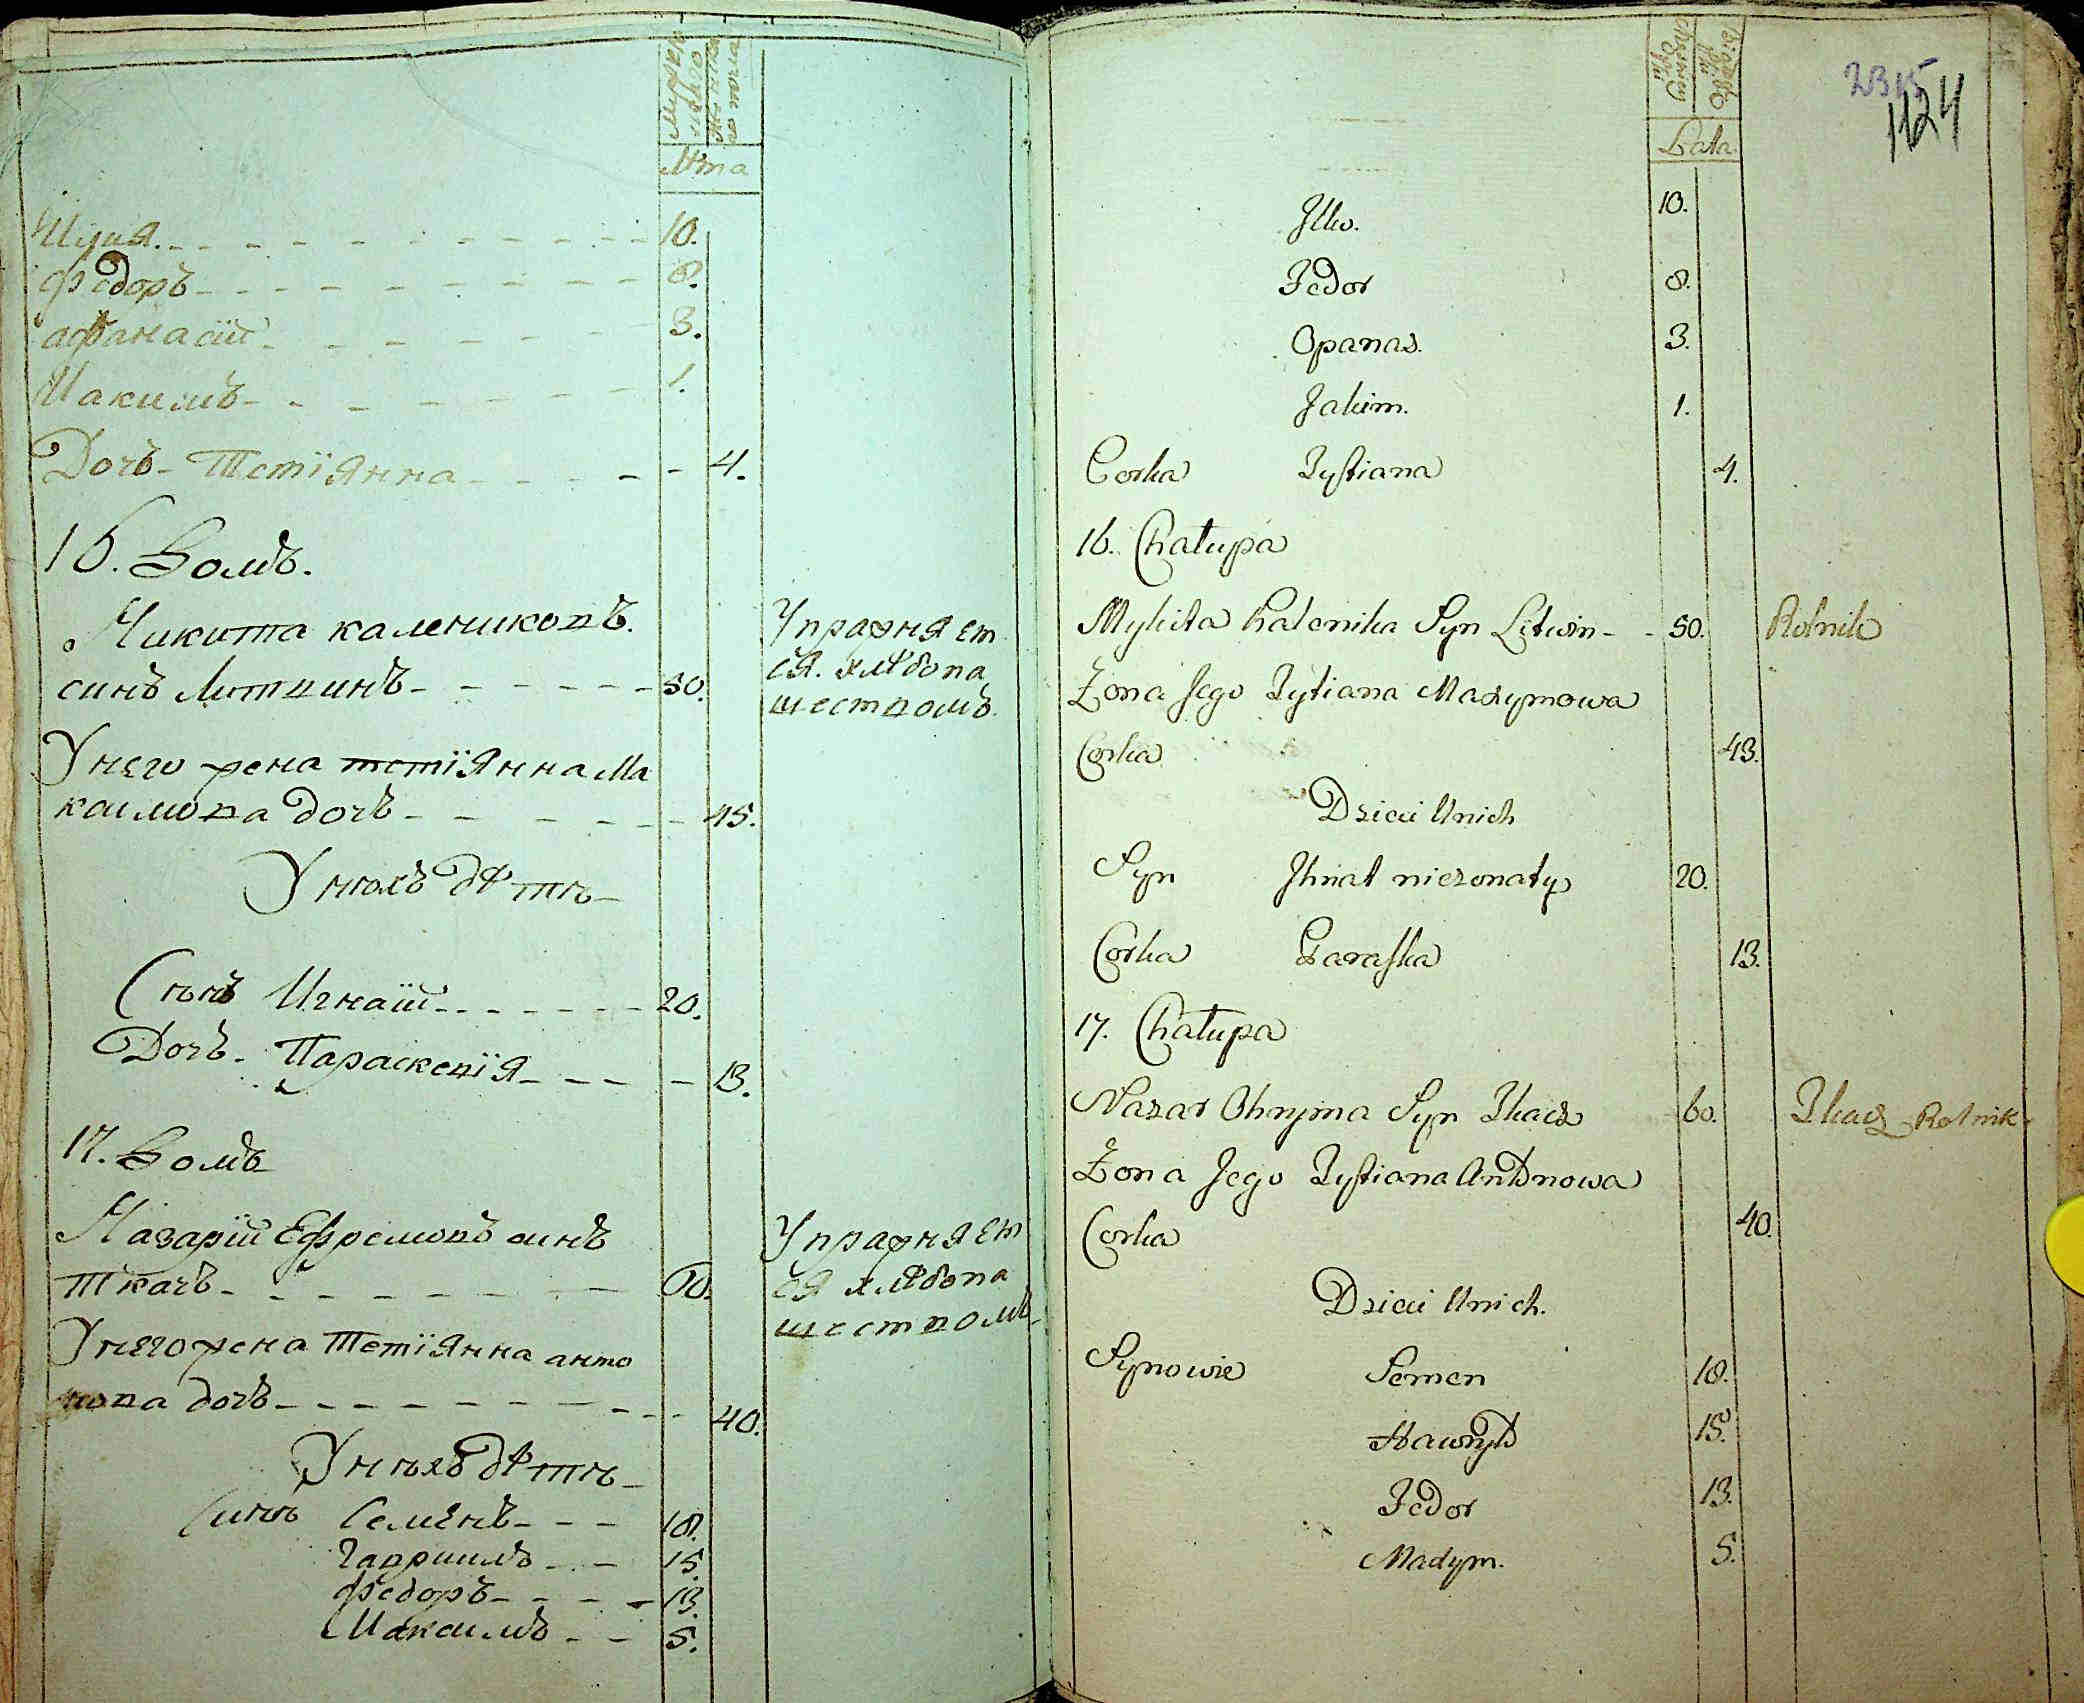 Мужеска
Женска
Лѣта
Илия 10.
Федоръ 8.
Афанасій 3.
Иакимъ 1.
Дочъ Тетіянна 4.
16. Домъ.
Никита калениковъ.
синъ Литвинъ 50.
Упражняет
ся. хлѣбопа
шествомъ.
У него жена тетіянна Ма
ксимова дочъ 45.
У нихъ дѣти
Сынъ Игнатій 20.
Дочъ Параскевія 13.
17. Домъ
Назарій Ефремовъ синъ
ткачъ 60.
Упражняет
ся хлѣбопа
шествомъ
У него жена Тетіянна анто
нова дочъ 40.
У нихъ дѣти
Сини Семенъ 18.
Гавриилъ 15.
Федоръ 13.
Максимъ 5.
2315
1124
Lata
Ilko. 10.
Fedor 8.
Opanas. 3.
Jakim. 1.
Corka Tystiana 4.
16. Chałupa
Mykita Kalenika Syn Litwin 50. Rolnik
Żona Jego Tytiana Maxymowa
Corka 43.
Dzieci Unich
Syn Ihnat niezonaty 20.
Corka Paraska 13.
17. Chałupa
Nazar Ohryma Syn Tkacz 60. Tkacz Rolnik
Żona Jego Tystiana Antonowa
Corka 40.
Dzieci Unich.
Synowie Semen 18.
Hawryło 15.
Fedor 13.
Maxym. 5.